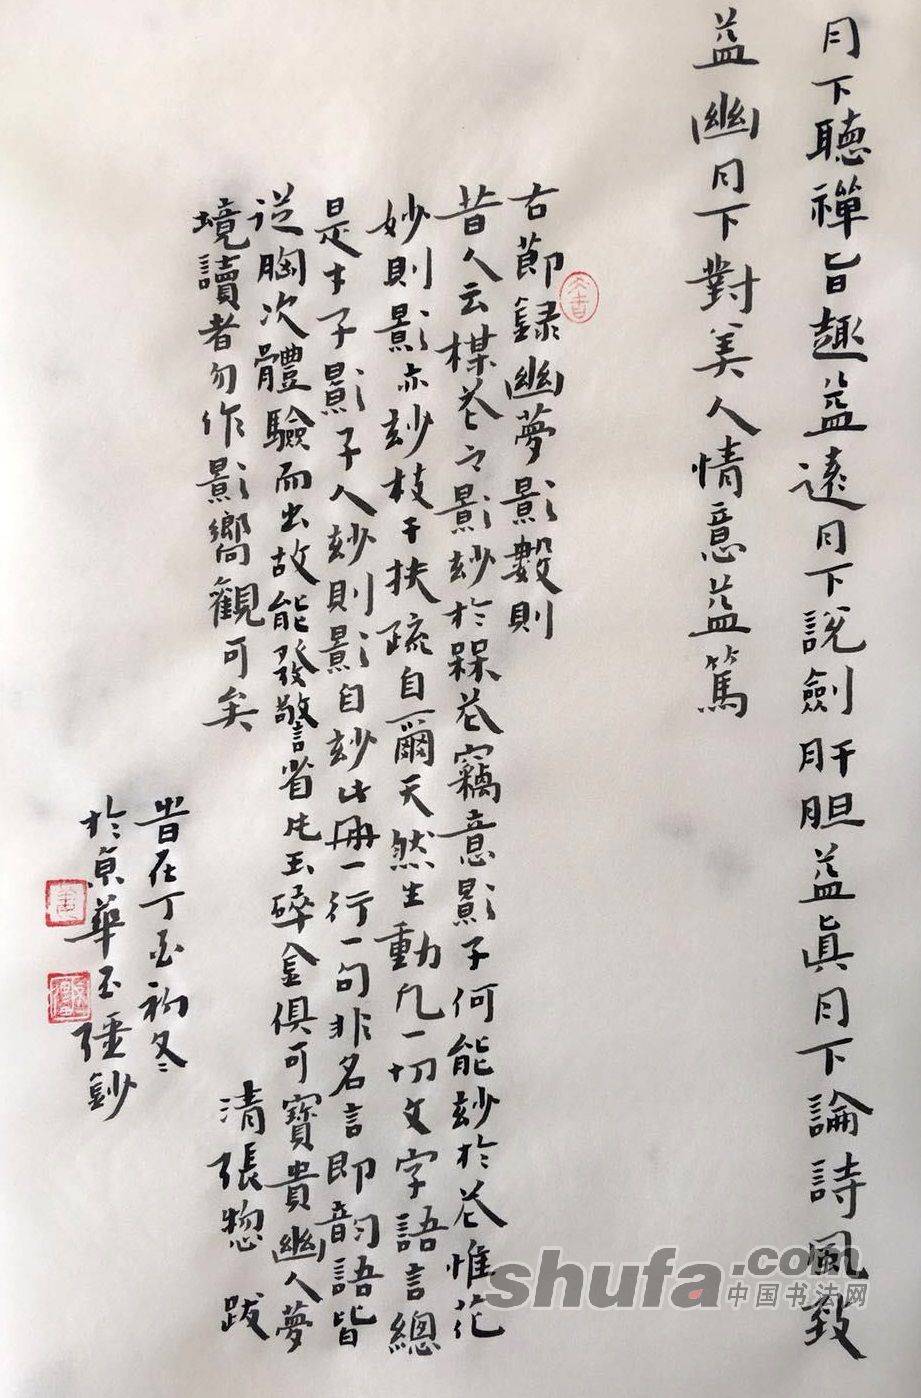 月下聽禪旨趣益遠月下説劍肝胆益眞月下論詩風致
益幽月下對美人情意益篤
古節録幽夢影數則
昔人云楳花之影妙於楳花竊意影子何能妙於花惟花
妙則影亦妙枝干扶疏自爾天然生動凡一切文字語言總
是才子影子人妙則影自妙此冊一行一句非名言即韵語皆
從胸次體驗而出故能發警省片玉碎金俱可寶貴幽人夢
境讀者勿作影響觀可矣
清張惣 跋
昔在丁酉初冬
於京華玉彊鈔
shufa.com
中国书法网